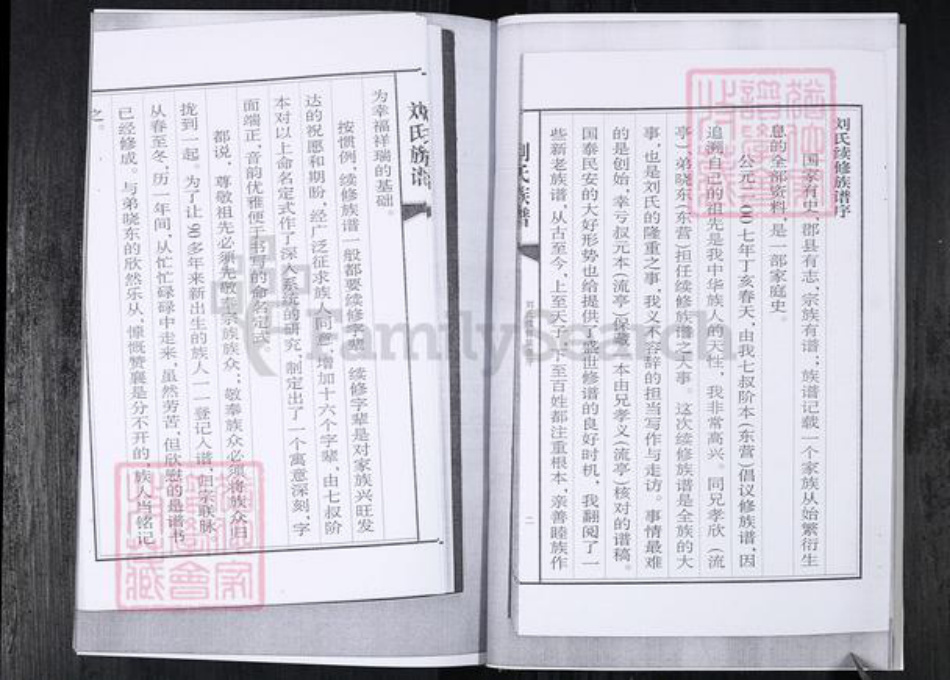 刘氏续修族谱序
国家有史、郡县有志、宗族有谱；族谱记载一个家族从始繁衍生
息的全部资料，是一部家庭史。
公元二〇〇七年丁亥春天，由我七叔阶本（东营）倡议修族谱，因
追溯自己的祖先是我中华族人的天性，我非常高兴。同兄孝欣（流
亭）、弟晓东（东营）担任续修族谱之大事。这次续修族谱是全族的大
事，也是刘氏的隆重之事，我义不容辞的担当写作与走访。事情最难
的是创始，幸亏叔元本（流亭）保藏一本由兄孝义（流亭）核对的谱稿。
国泰民安的大好形势也给提供了盛世修谱的良好时机，我翻阅了一
些新老族谱，从古至今，上至天子，下至百姓都注重根本，亲善睦族作
刘氏族谱
二
刘氏族谱
为幸福祥瑞的基础。
按惯例，续修族谱一般都要续修字辈，续修字辈是对家族兴旺发
达的祝愿和期盼，经广泛征求族人同意，增加十六个字辈，由七叔阶
本对以上命名定式作了深入系统的研究，制定出了一个寓意深刻，字
面端正，音韵优雅便于书写的命名定式。
都说，尊敬祖先必须先敬奉宗族族众；敬奉族众必须将族众归
拢到一起。为了让90多年来新出生的族人一一登记入谱，归宗联脉，
从春至冬，历一年间，从忙忙碌碌中走来，虽然劳苦，但欣慰的是谱书
已经修成。与弟晓东的欣然乐从，慷慨赞襄是分不开的，族人当铭记
之。
FamilySearch